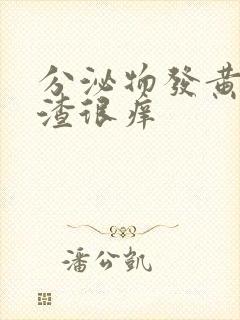 分泌物發黄
渣很痒
潘公凱